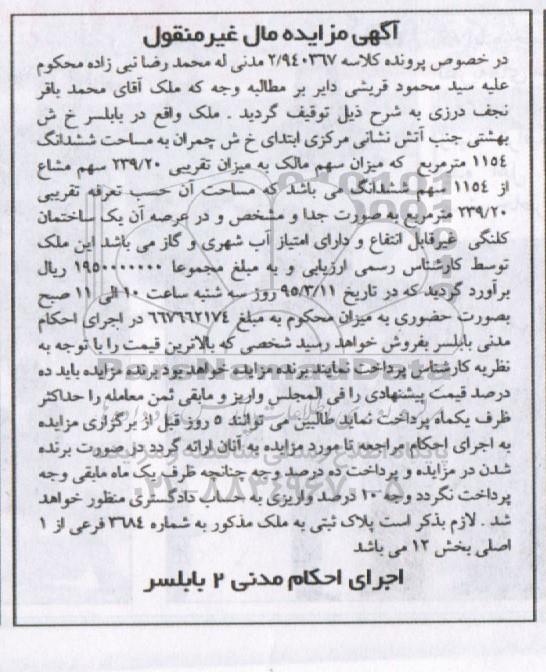 آگهی مزایده مال غیرمنقول
در خصوص پرونده کلاسه ۲/۹٤۰۳٦۷ مدنی له محمد رضا نبی زاده محکوم
علیه سید محمود قریشی دایر بر مطالبه وجه که ملک آقای محمد باقر
نجف درزی به شرح ذیل توقیف گردید . ملک واقع در بابلسر خ ش
بهشتی جنب آتش نشانی مرکزی ابتدای خ ش چمران به مساحت ششدانگ
۱۱٥٤ مترمربع که میزان سهم مالک به میزان تقریبی ۲۳۹/۲۰ سهم مشاع
از ۱۱٥٤ سهم ششدانگ می باشد که مساحت آن حسب تعرفه تقریبی
۲۳۹/۲۰ مترمربع به صورت جدا و مشخص و در عرصه آن یک ساختمان
کلنگی غیرقابل انتفاع و دارای امتیاز آب شهری و گاز می باشد این ملک
توسط کارشناس رسمی ارزیابی و به مبلغ مجموعا ۱۹٥۰۰۰۰۰۰۰۰ ریال
برآورد گردید که در تاریخ ۹٥/۳/۱۱ روز سه شنبه ساعت ۱۰ الی ۱۱ صبح
بصورت حضوری به میزان محکوم به مبلغ ٦٦۷٦٦۲۱۷٤ در اجرای احکام
مدنی بابلسر بفروش خواهد رسید شخصی که بالاترین قیمت را با توجه به
نظریه کارشناس پرداخت نمایند برنده مزایده خواهد بود برنده مزایده باید ده
درصد قیمت پیشنهادی را فی المجلس واریز و مابقی ثمن معامله را حداکثر
ظرف یکماه پرداخت نماید طالبین می توانند ٥ روز قبل از برگزاری مزایده
به اجرای احکام مراجعه تا مورد مزایده به آنان ارائه گردد در صورت برنده
شدن در مزایده و پرداخت ده درصد وجه چنانچه ظرف یک ماه مابقی وجه
پرداخت نگردد وجه ۱۰ درصد واریزی به حساب دادگستری منظور خواهد
شد . لازم بذکر است پلاک ثبتی به ملک مذکور به شماره ۳٦۸٤ فرعی از ۱
اصلی بخش ۱۲ می باشد
اجرای احکام مدنی ۲ بابلسر
ParsNamadData
۰۲۱-۸۸۳۴۹۶۷۰-۵